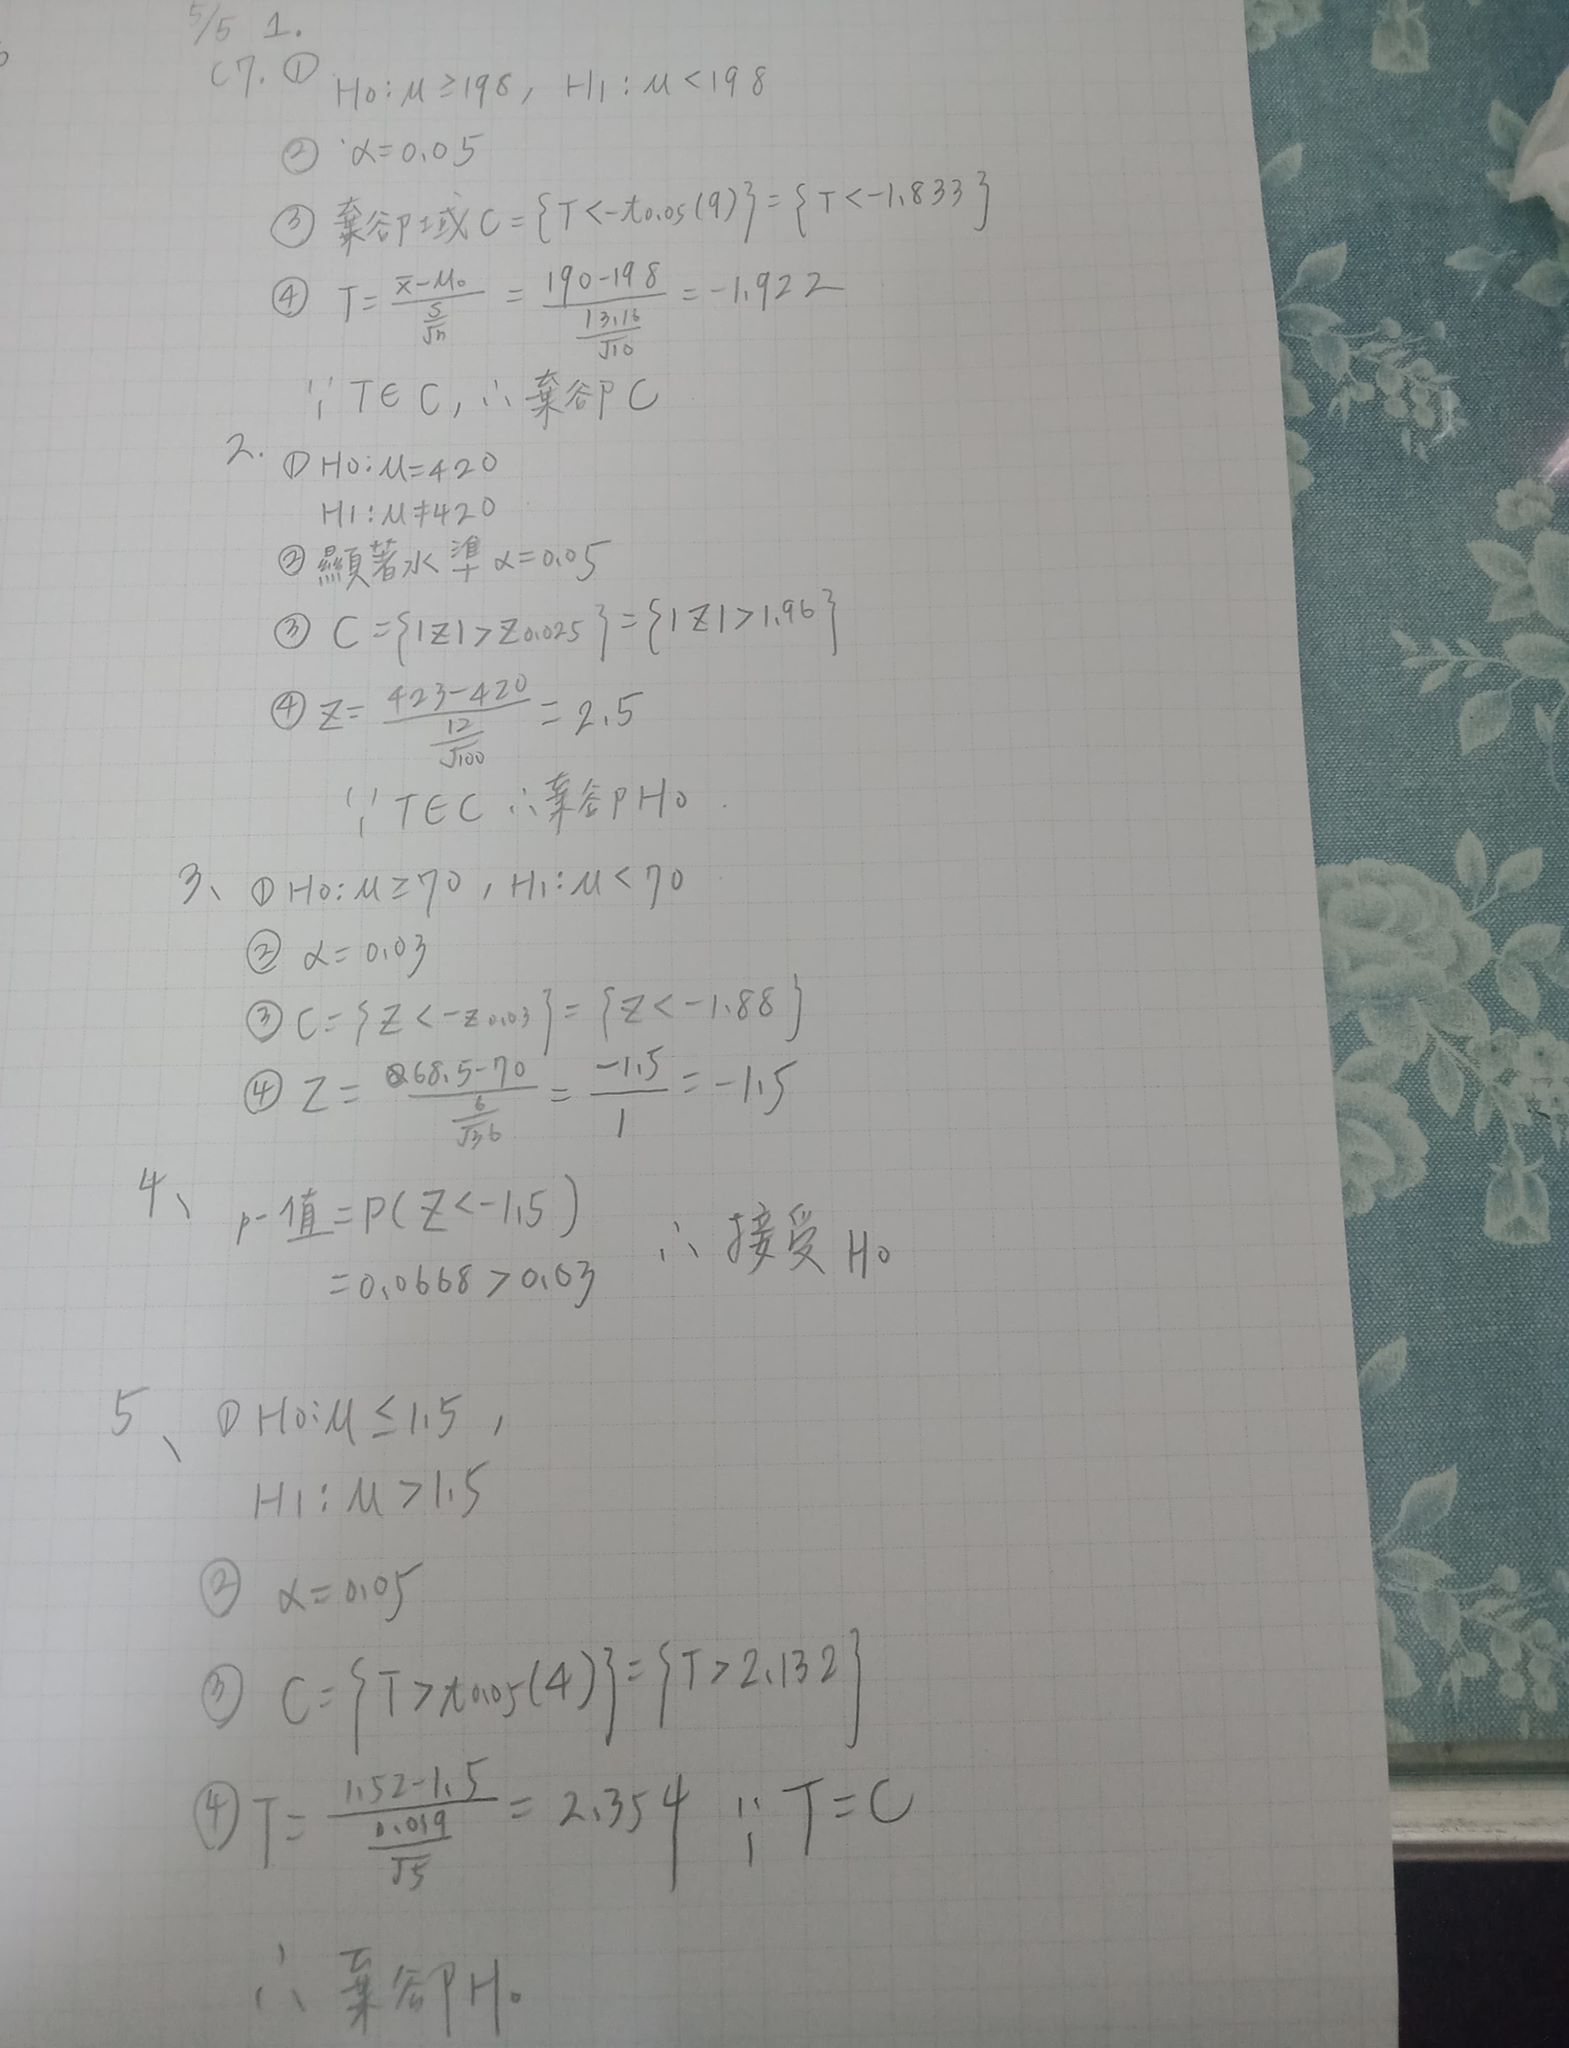 5/5 1.
C7. ① H0:μ≥198, H1:μ<198
② α=0.05
③ 棄卻域 C={T<-t0.05(9)}={T<-1.833}
④ T=(x̄-μ0)/(s/√n)=(190-198)/(13.16/√10)=-1.922
∵T∈C,∴棄卻C
2. ① H0:μ=420
H1:μ≠420
② 顯著水準 α=0.05
③ C={|Z|>Z0.025}={|Z|>1.96}
④ Z=(423-420)/(12/√100)=2.5
∵T∈C ∴棄卻H0
3、 ① H0:μ≥70, H1:μ<70
② α=0.03
③ C={Z<-z0.03}={Z<-1.88}
④ Z=(68.5-70)/(6/√36)=-1.5/1=-1.5
4、 p-值=P(Z<-1.5)
=0.0668>0.03 ∴接受H0
5、 ① H0:μ≤1.5,
H1:μ>1.5
② α=0.05
③ C={T>t0.05(4)}={T>2.132}
④ T=(1.52-1.5)/(0.019/√5)=2.354 ∵T=C
∴棄卻H0